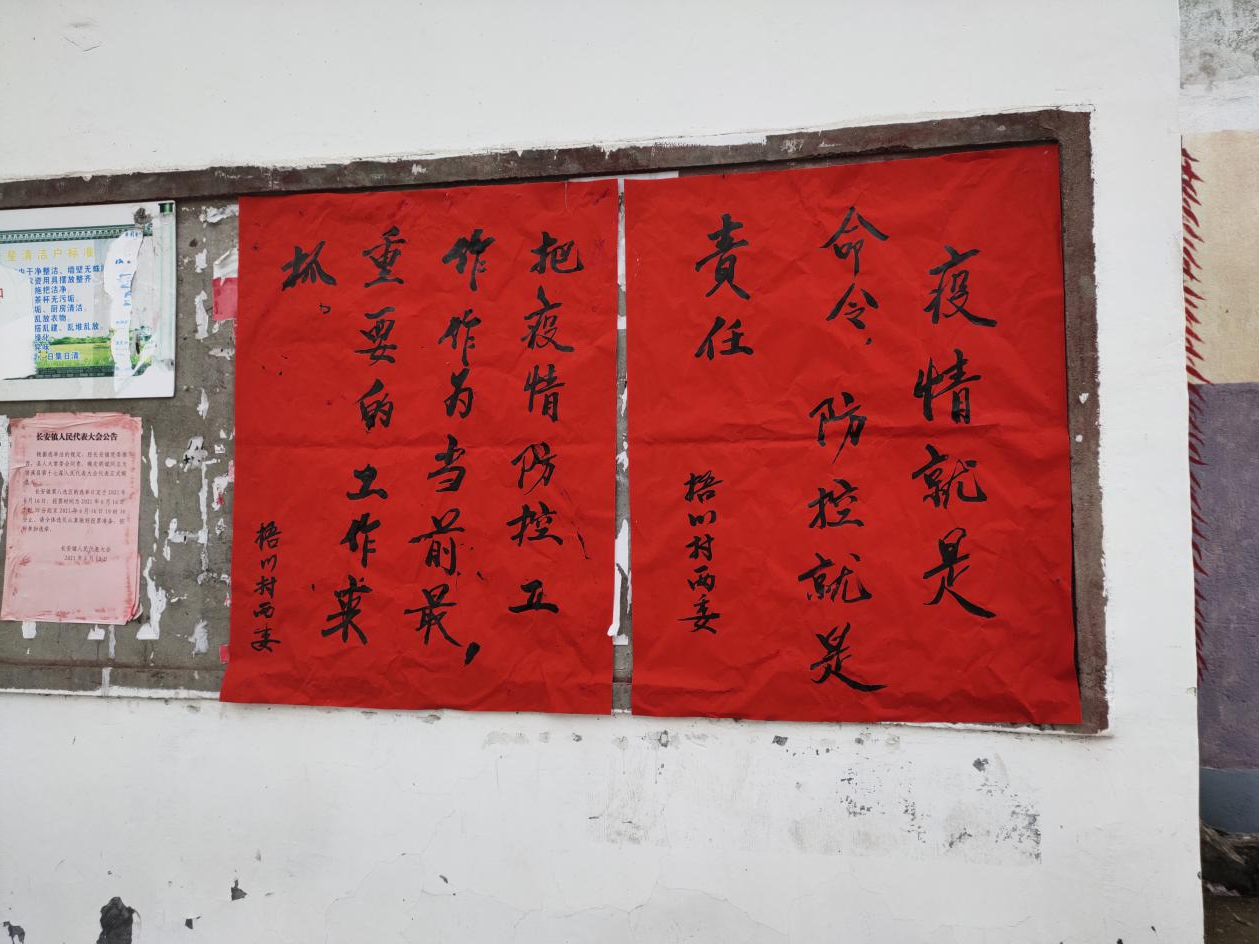 疫情就是
命令,防控就是
责任
梧川村两委
把疫情防控工
作作为当前最,
重要的工作来
抓。
梧川村两委
清洁户标准
干净整洁、墙壁无蛛
用具摆放整齐
拖把洁净
茶杯无污垢
垢、厨房清洁
乱放衣物
搭乱建、乱堆乱放
绿化
日集日清
长安镇人民代表大会公告
长安镇人民代表大会